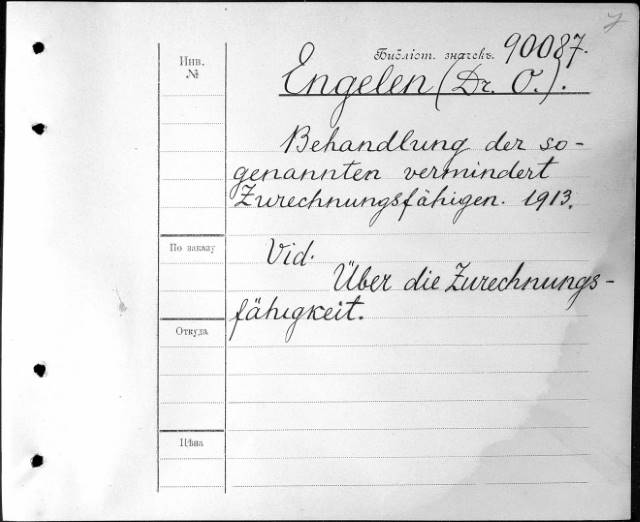 Инв. №
Библіот. значекъ. 90087.
Engelen (Dr. O.).
Behandlung der so-
genannten vermindert
Zurechnungsfähigen. 1913.
По заказу
Vid.
Über die Zurechnungs-
fähigkeit.
Откуда
Цѣна